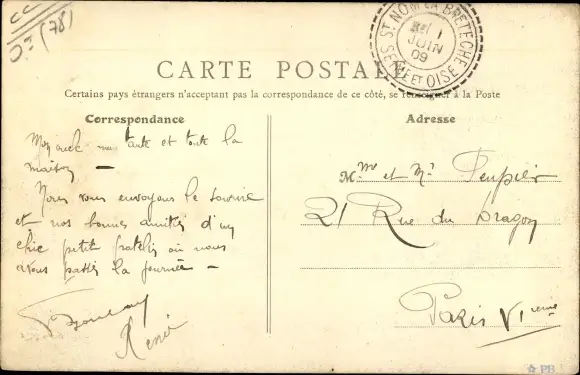 (78)
ST NOM LA BRETECHE
1
JUIN
09
SEINE ET OISE
CARTE POSTALE
Certains pays étrangers n'acceptant pas la correspondance de ce côté, se renseigner à la Poste
Correspondance
Adresse
tante et toute la
maison —
Nous vous envoyons le souvenir
et nos bonnes amitiés d'un
chic petit où nous
avons passé la journée —
René
Mme et Mr
21 Rue du Dragon
Paris VIième
PB